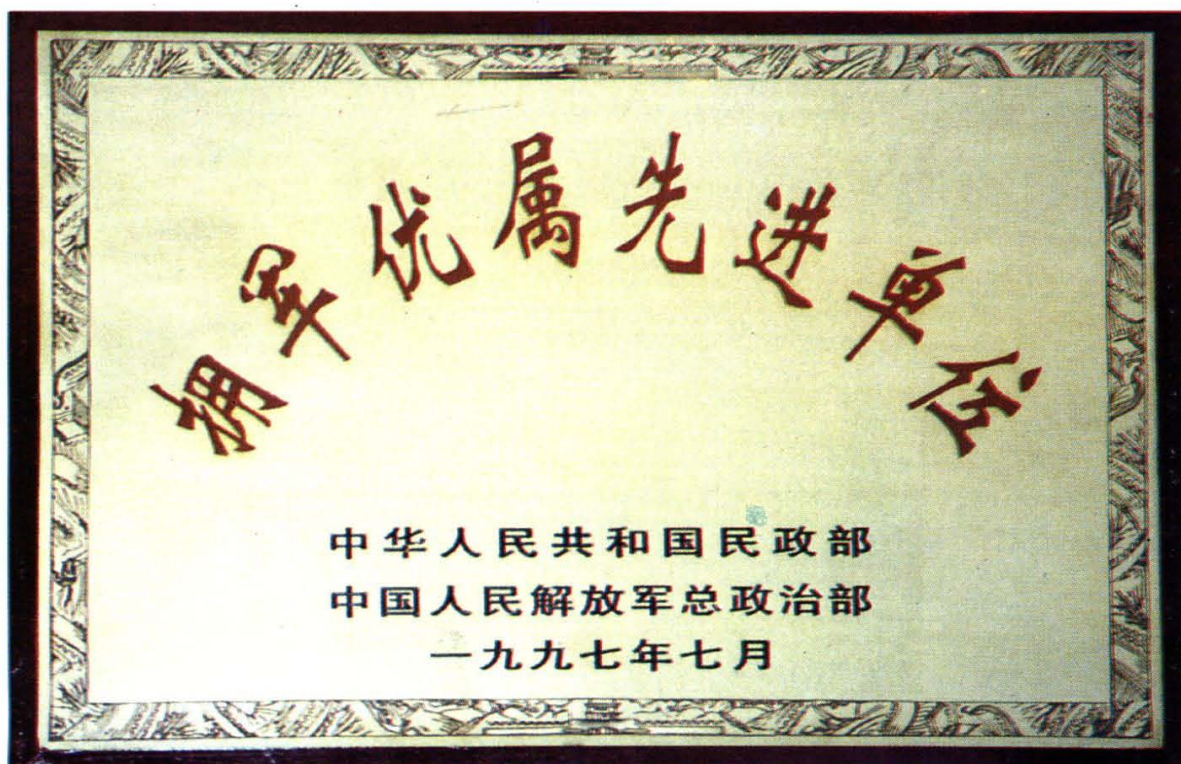 拥军优属先进单位
中华人民共和国民政部
中国人民解放军总政治部
一九九七年七月